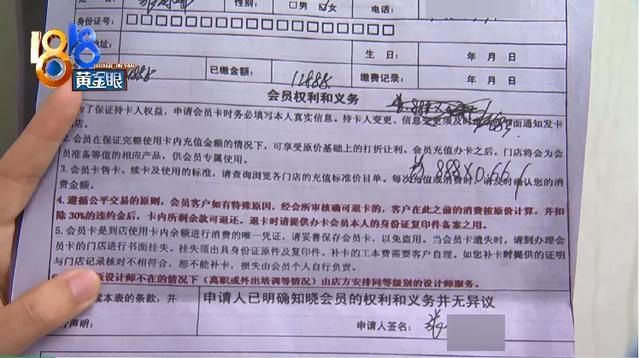 性别: □男 女
电话:
身份证号:
1818
黄金眼
地址:
生 日: 年 月 日
已缴金额: 12888
缴费记录: 年 月 日
会员权利和义务
为了保证持卡人权益,申请会员卡时务必填写本人真实信息。持卡人变更、信息变更须及时书面通知发卡
店。
2.会员在保证完整使用卡内充值金额的情况下,可享受原价基础上的打折让利。会员充值办卡之后,门店将会为会
员准备等值的相应产品,供会员专属使用。
3.会员卡售卡、续卡及使用的标准,请查询浏览各门店的充值标准价目单。每次充值或消费时,请及时确认您的消
费金额。
888×0.66
4.遵循公平交易的原则,会员客户如有特殊原因,经公司审核确可退卡的,客户在此之前的消费按原价计算,并扣
除30%的违约金后,卡内所剩余款可退还。退卡时请提供办卡会员本人的身份证复印件备案之用。
5.会员卡是到店使用卡内余额进行消费的唯一凭证,请妥善保存会员卡,以免盗用。当会员卡遗失时,请到办理会
员卡的门店进行书面挂失。挂失须出具身份证原件及复印件。补卡的工本费需客户自理。如您补卡时提供的证明
与门店记录核对不相符合,恕不能补卡,损失由会员个人自行负责。
设计师不在的情况下(离职或外出培训等情况)由店方安排同等级别的设计师服务。
读本表的条款,并
申请人已明确知晓会员的权利和义务并无异议
声明:
申请人签名: